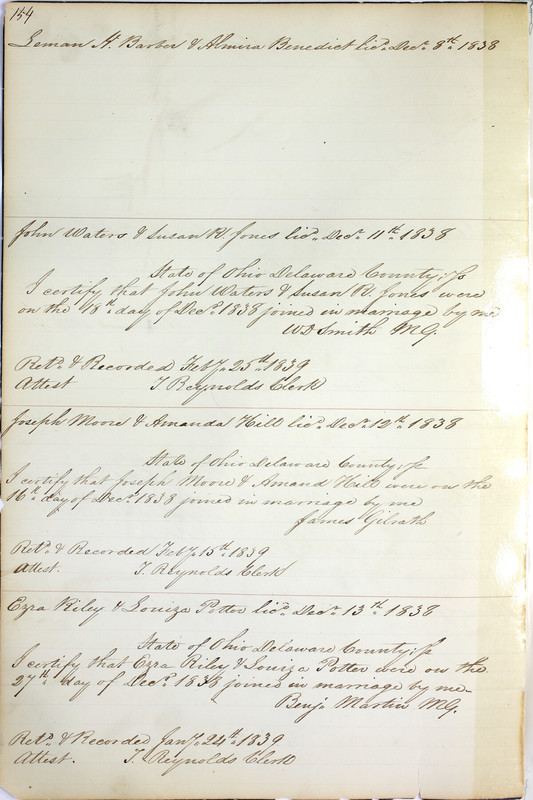 154
Leman H. Barber & Almira Benedict lic. Dec. 8th 1838
John Waters & Susan R. Jones lic. Dec. 11th 1838
State of Ohio Delaware County, ss
I certify that John Waters & Susan R. Jones were
on the 18th day of Dec. 1838 joined in marriage by me
WD Smith M.G.
Retd. & Recorded Feby. 25th 1839
Attest T Reynolds Clerk
Joseph Moore & Amanda Hill lic. Dec. 12th 1838
State of Ohio Delaware County, ss
I certify that Joseph Moore & Amand Hill were on the
16th day of Dec. 1838 joined in marriage by me
James Gilrath
Retd. & Recorded Feby 15th 1839
Attest. T. Reynolds Clerk
Ezra Riley & Louiza Potter lic. Dec. 13th 1838
State of Ohio Delaware County, ss
I certify that Ezra Riley & Louiza Potter were on the
27th day of Dec. 1838 joined in marriage by me
Benj. Martin M.G.
Retd. & Recorded Jany. 24th 1839
Attest. T. Reynolds Clerk